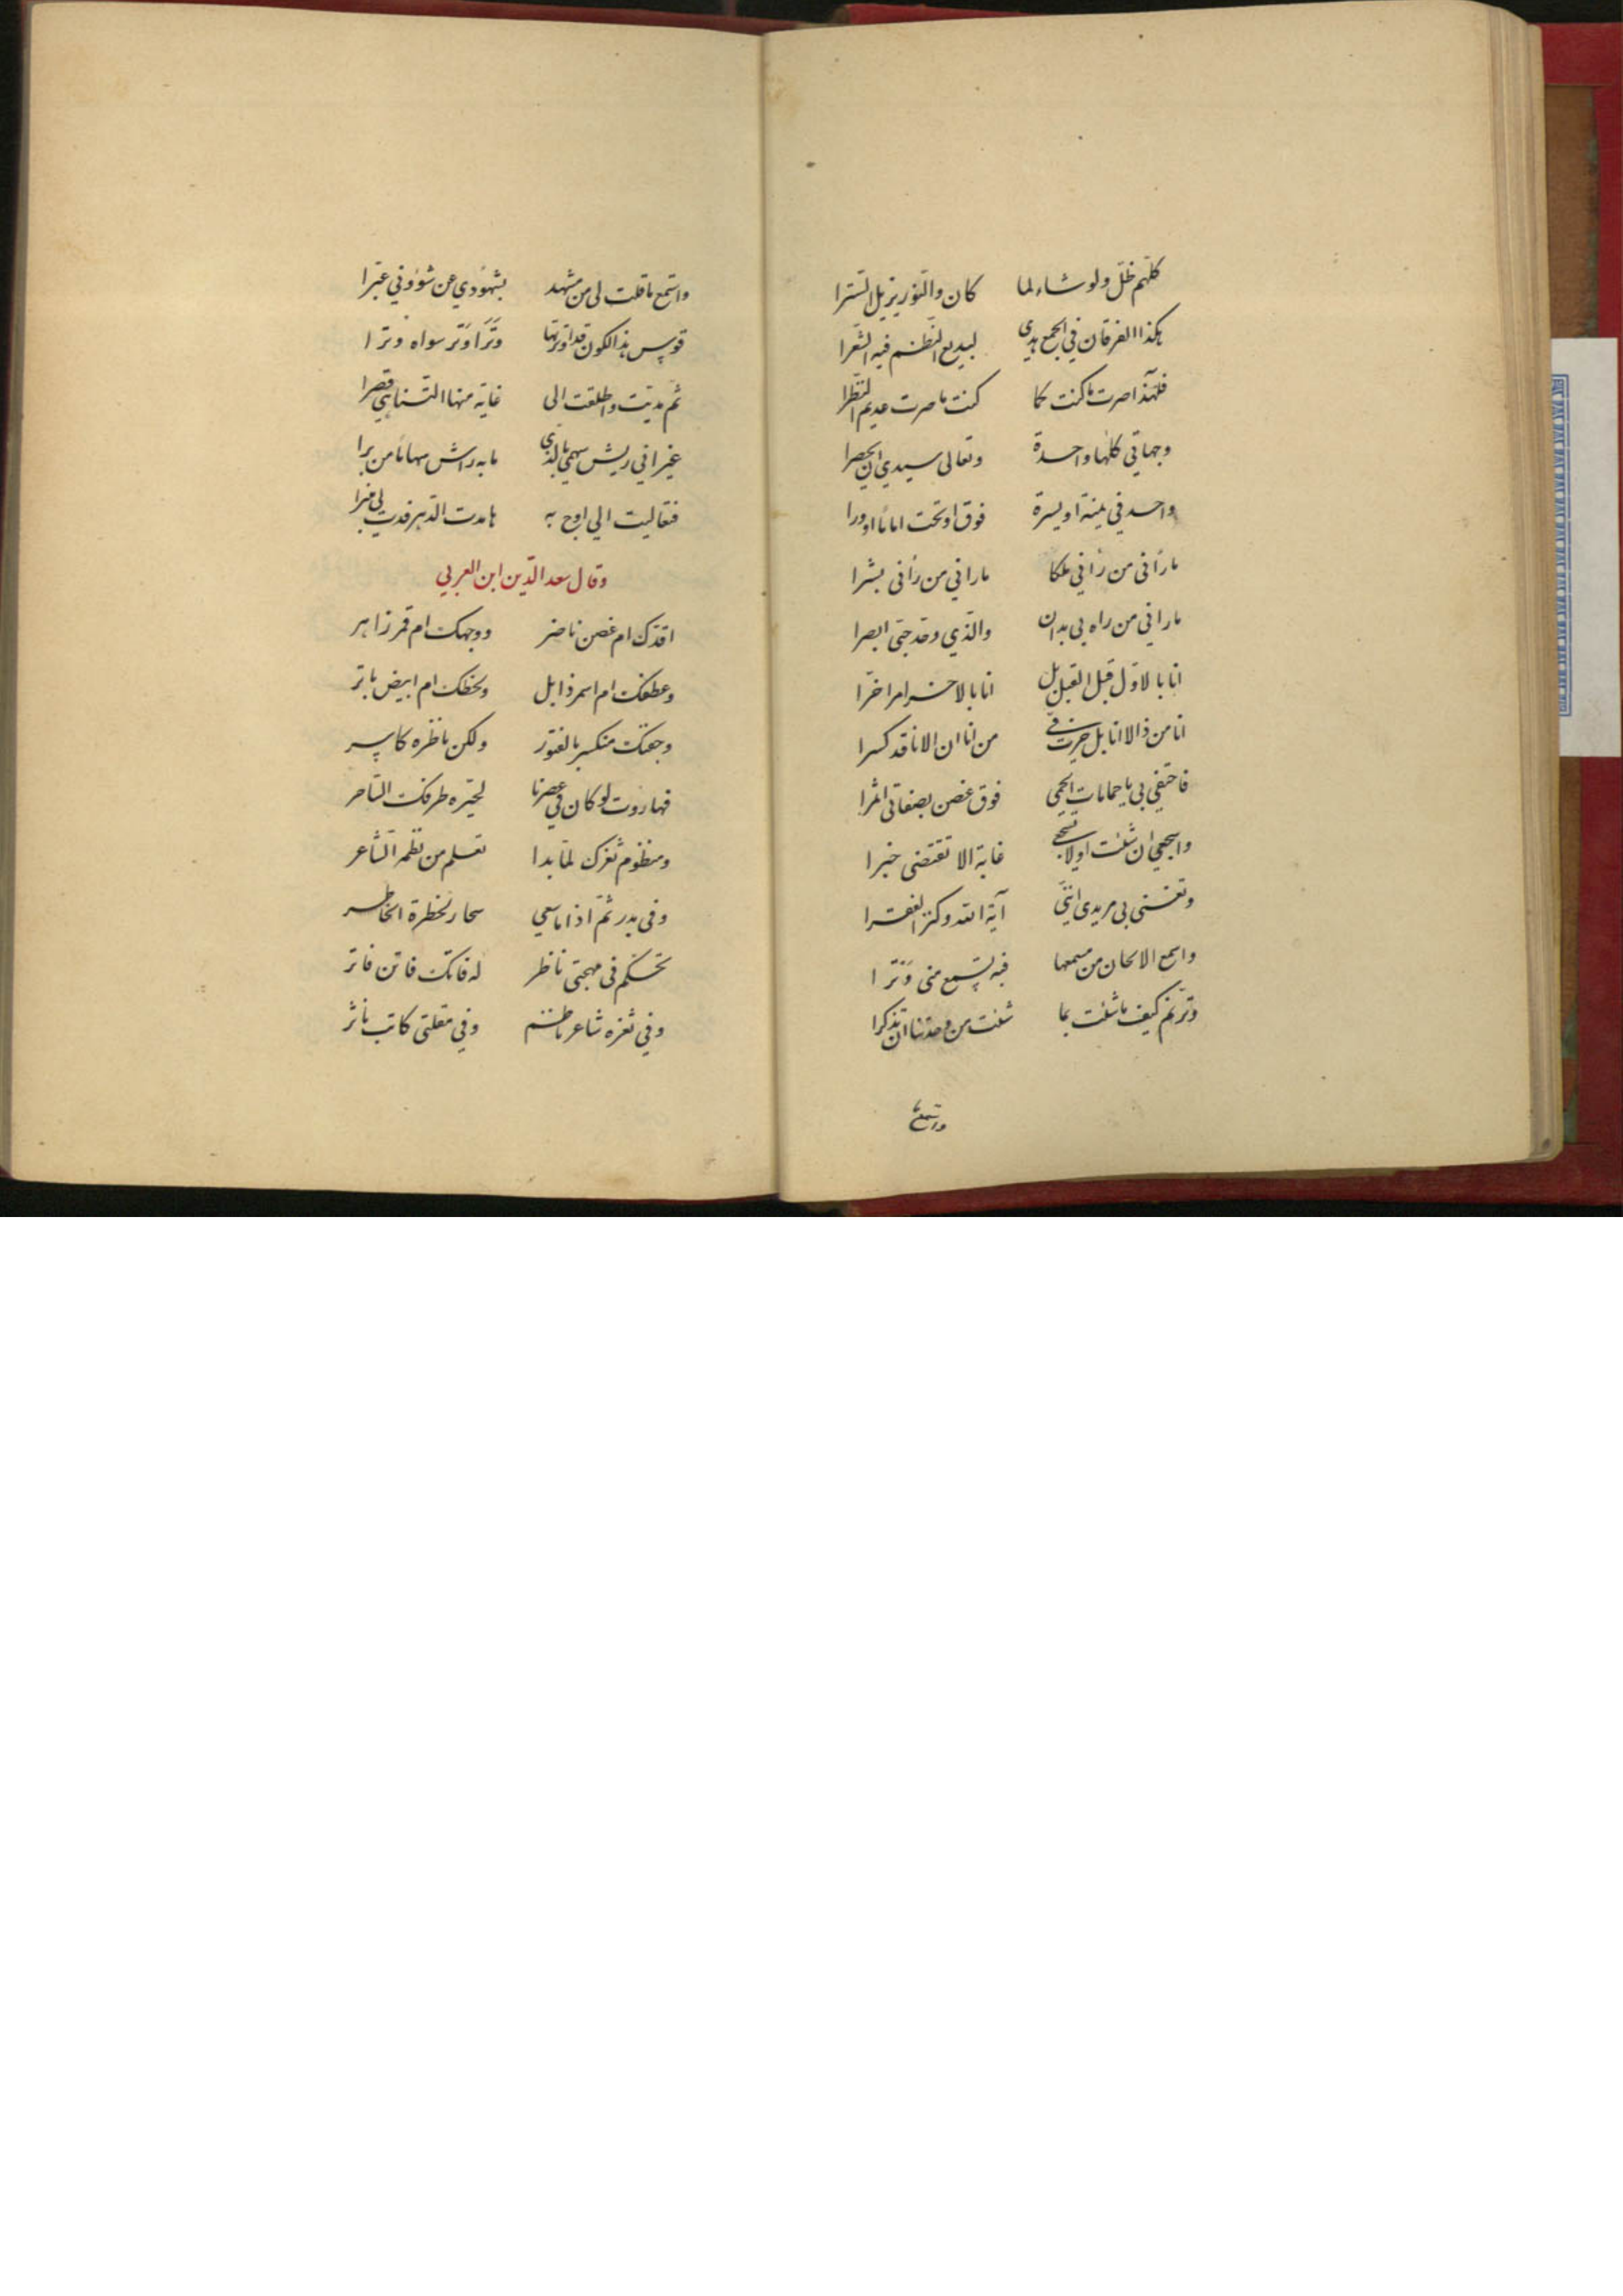 كلهم ظلّ ولو شاء لما كان والنّور يزيل السّترا
هكذا الفرقان في الجمع بدي لبديع النّظم فيه الشعرا
فلهذا صرت ما كنت كما كنت ما صرت عديم النّظرا
وجهاتي كلّها واحدة وتعالى سيدي ان يحصرا
واحد في يمنة او يسرة فوق او تحت اماما او ورا
ما رأني من رأني ملكا ما راني من رأنى بشرا
ما راني من راه بى بدا والذي وحد حتى ابصرا
انا بالاول قبل القبل بل انا بالاخر امرا اخرا
انا من ذا لا انا بل حرت في من انا ان الانا قد كسرا
فاحتفي بي يا حمامات الحمى فوق غصن بصفاتي اثمرا
واسجعي ان شئت اولا تسجعي غاية الا تقتضى خبرا
وتغنى بي مريدى انني آية الله وكنز الفقرا
واسمع الالحان من مسمعها فبه تسمع منى وترا
وترنم كيف ما شئت بما شئت من وحدتنا ان تذكرا
واستمع
واستمع ما قلت لى من مشهد بشهودي عن شؤوني عبّرا
قوس هذا الكون قد اوترتها وترا وتر سواه وترا
ثم مديت واطلقت الى غاية منها التناهي قصرا
غير اني ريش سهمي بالذي ما به راش سهاما من برا
فتعاليت الي اوج به ما مدت الدهر قدت لى
وقال سعد الدّين ابن العربي
اقدّك ام غصن ناضر ووجهك ام قمر زاهر
وعطفك ام اسمر ذابل ولحظك ام ابيض باتر
وجفنك منكسر بالفتور ولكن ناظره كاسر
فهاروت لو كان في عصرنا لحيّره طرفك السّاحر
ومنظوم ثغرك لمّا بدا تعلم من نظمه الشّاعر
وفى بدر ثمّ اذا ما سعي تحار لخطرة الخاطر
تحكم في مهجتى ناظر له فاتك فاتن فاتر
وفي ثغره شاعر ناظم وفي مقلتى كاتب ناثر